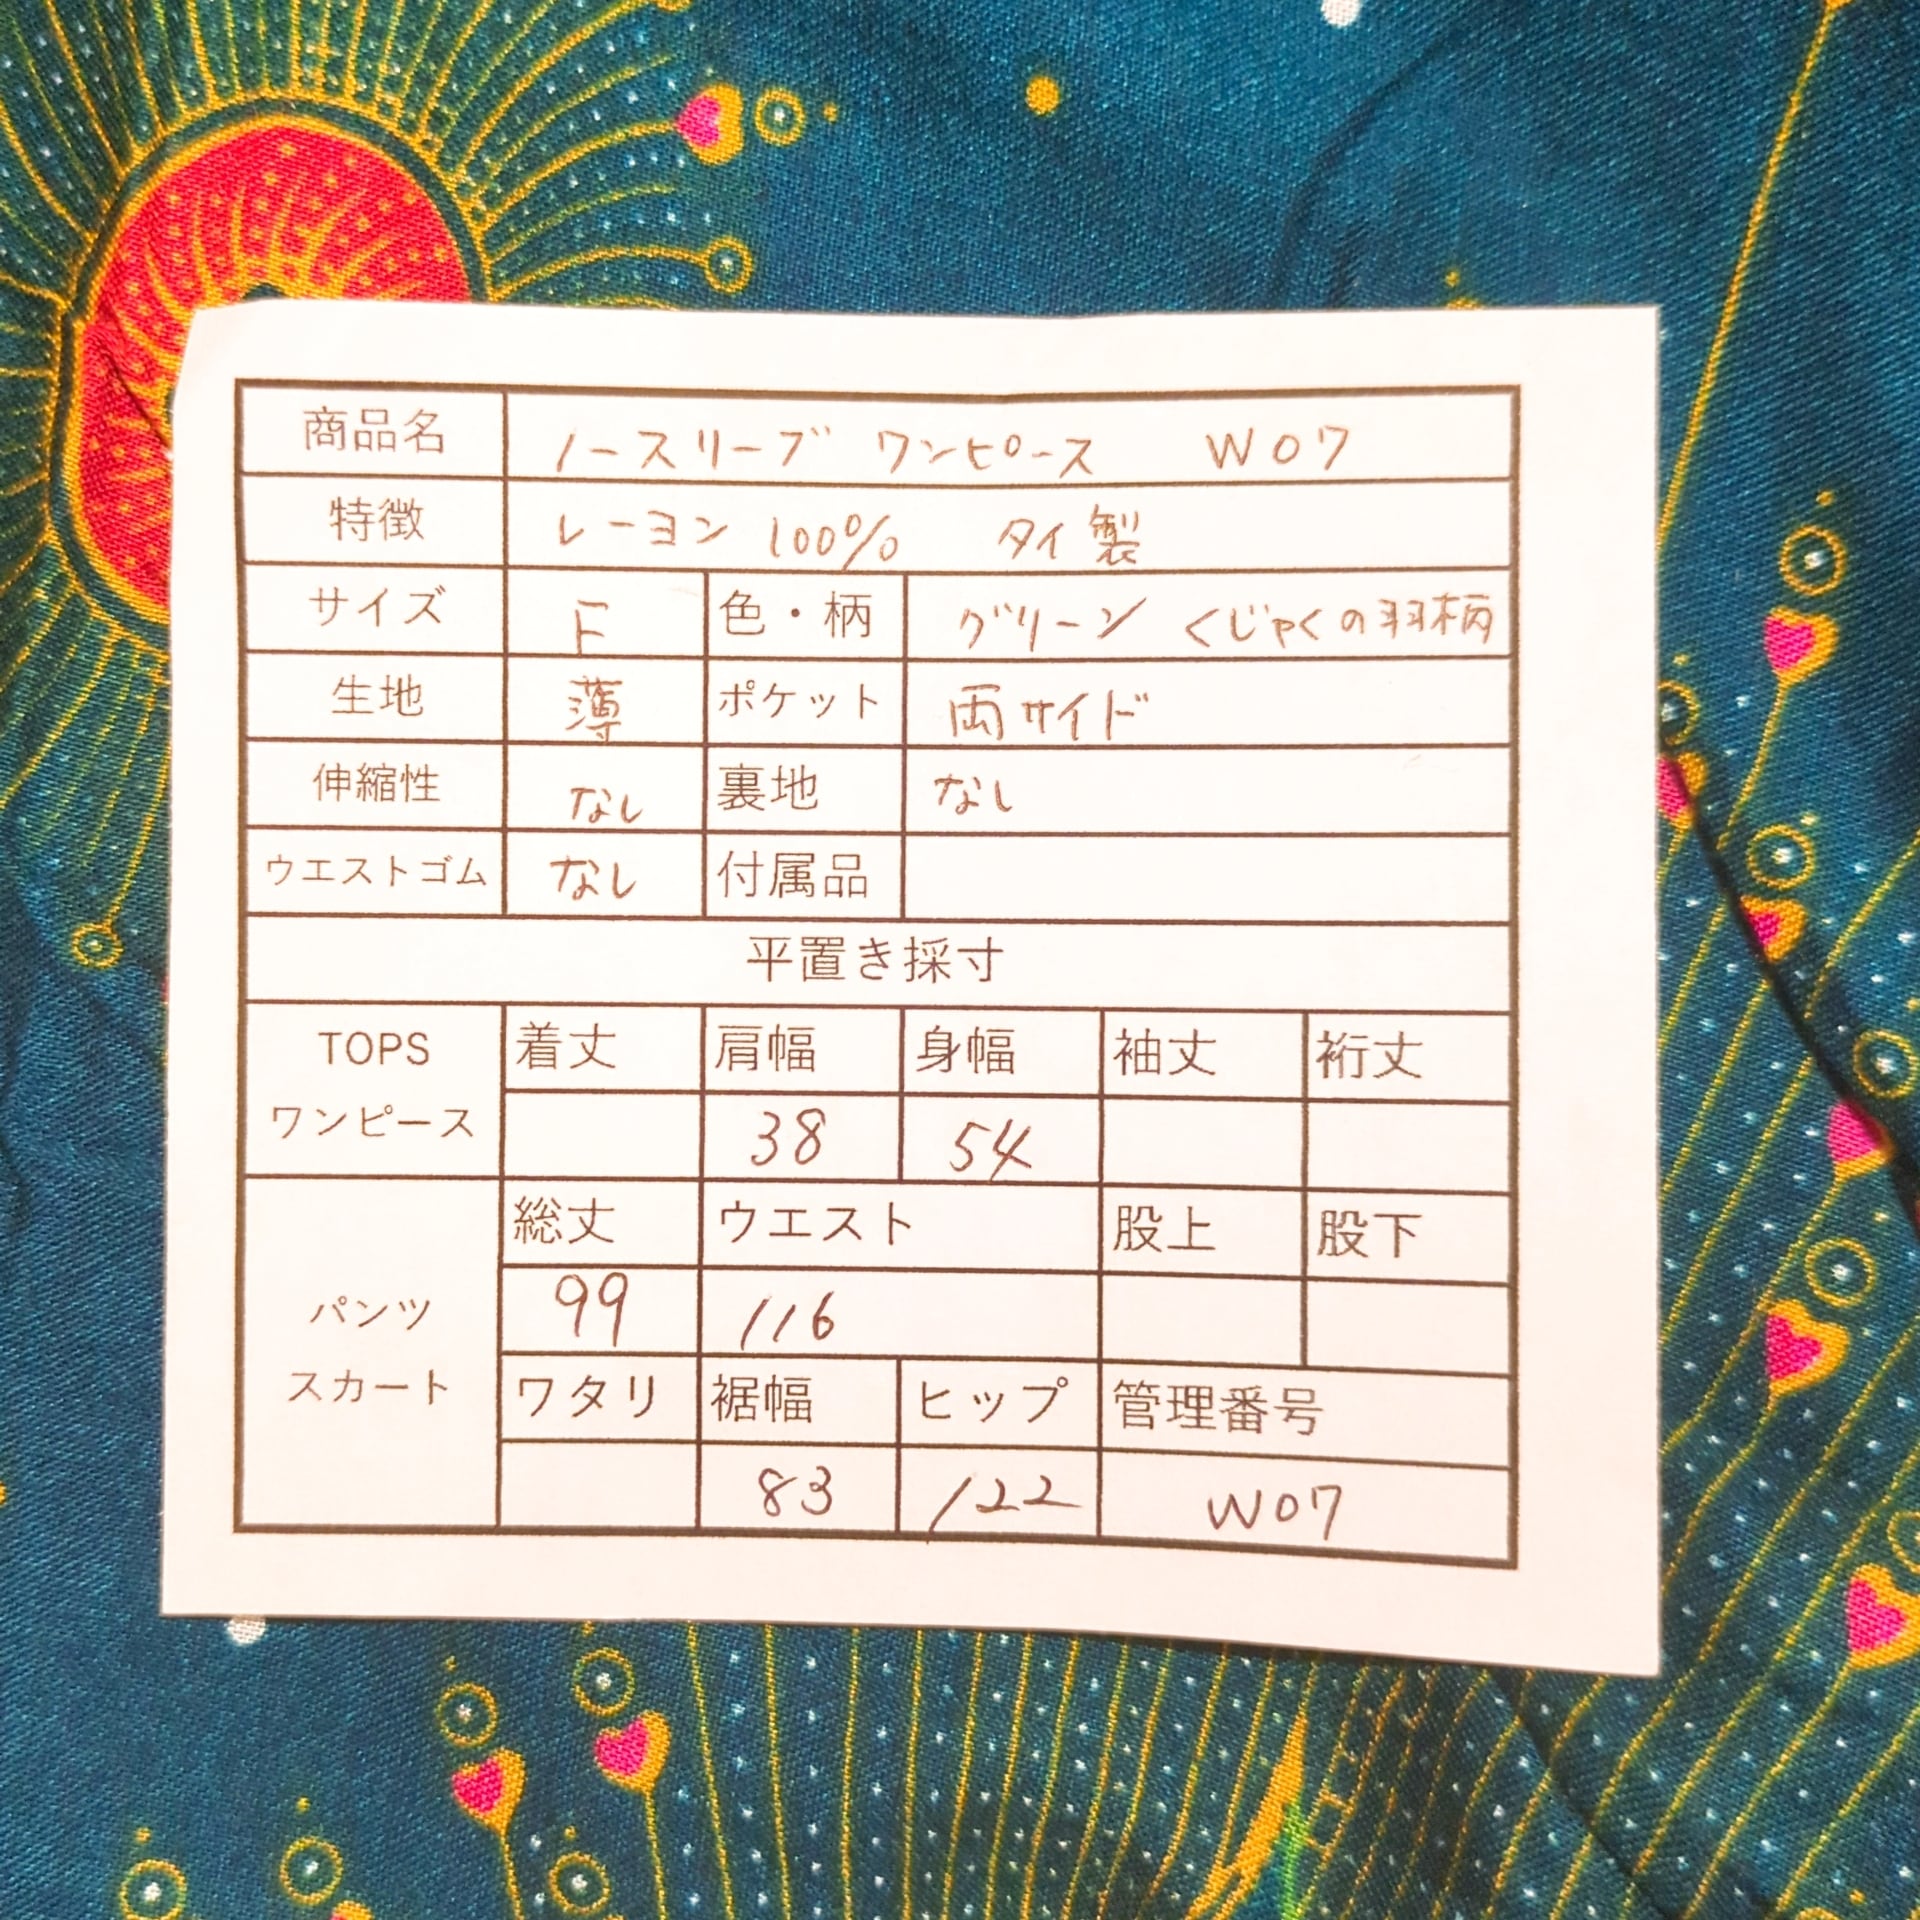 商品名 ノースリーブ ワンピース W07
特徴 レーヨン 100% タイ製
サイズ F 色・柄 グリーン くじゃくの羽柄
生地 薄 ポケット 両サイド
伸縮性 なし 裏地 なし
ウエストゴム なし 付属品
平置き採寸
TOPS 着丈 肩幅 身幅 袖丈 裄丈
ワンピース 38 54
総丈 ウエスト 股上 股下
パンツ 99 116
スカート ワタリ 裾幅 ヒップ 管理番号
83 122 W07